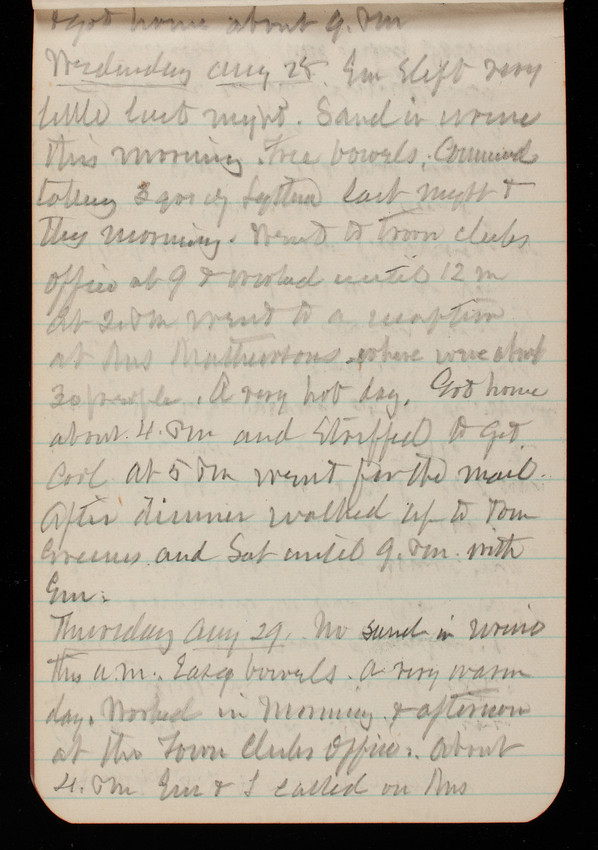 & got home about 9. P.M
Wednesday Aug 28. Em Slept very
little last night. Sand in urine
this morning. Free bowels. Commenced
taking 3 grs of last night &
this morning. Went to Town clerks
office at 9 & worked until 12 M
At 2. P.M went to a reception
at Mrs where were about
30 people. A very hot day. Got home
about 4. P.M and Stripped to get
cool At 5 P.M went for the mail.
After dinner walked up to Tom
Greenes and Sat until 9. P.M. with
Em.
Thursday Aug 29. No sand in urine
this a.m. Easy bowels. A very warm
day. Worked in Morning & afternoon
at the Town Clerks Office. About
4. P.M Em & I called on Mrs